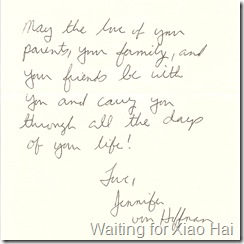 May the love of your
parents, your family, and
your friends be with
you and carry you
through all the days
of your life!
Love,
Jennifer
von Hoffman
Waiting for Xiao Hai